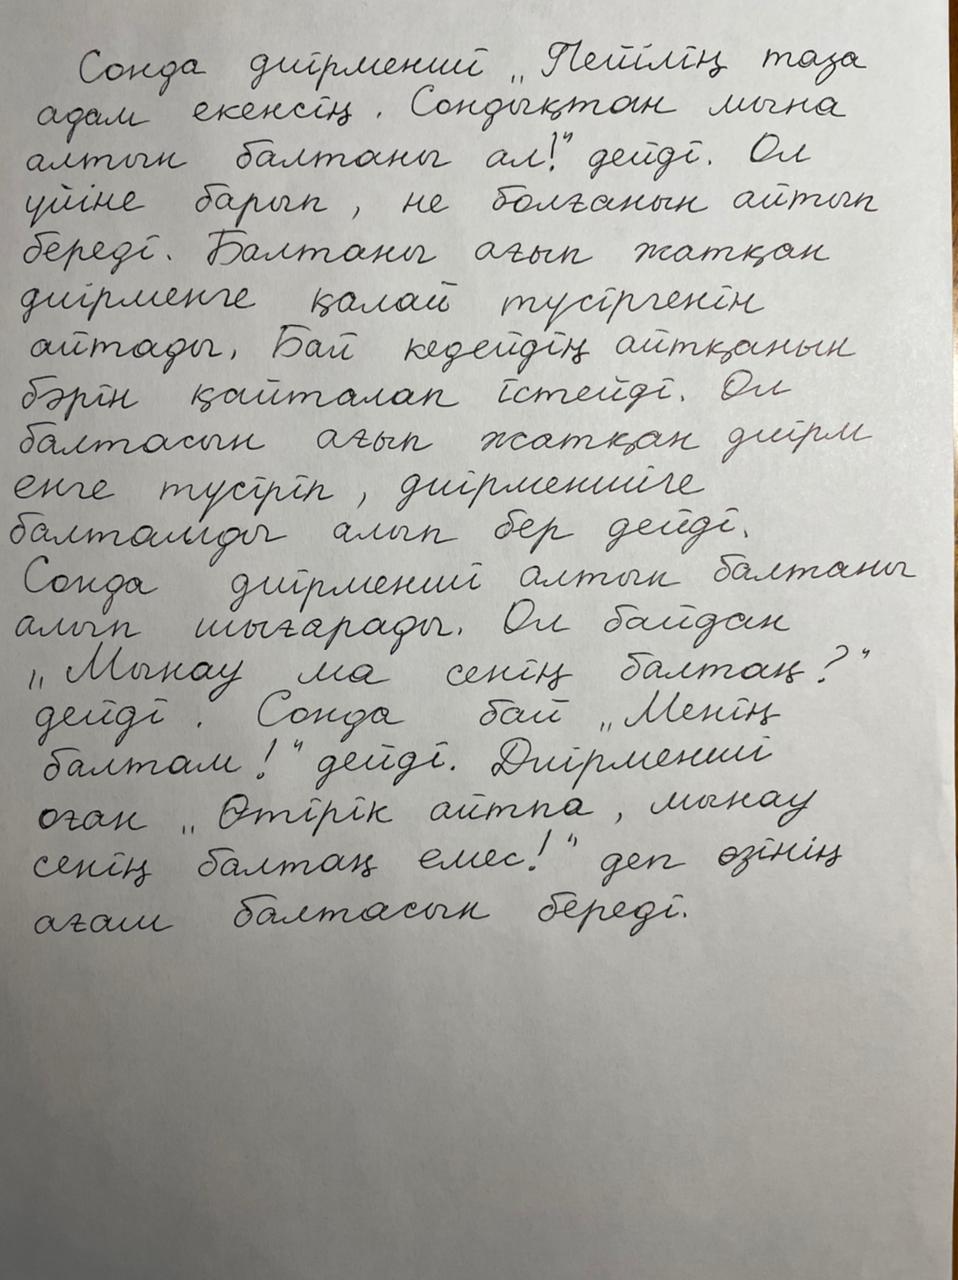 Сонда диірменші „Пейілің таза
адам екенсің. Сондықтан мына
алтын балтаны ал!" дейді. Ол
үйіне барып, не болғанын айтып
береді. Балтаны ағып жатқан
диірменге қалай түсіргенін
айтады. Бай кедейдің айтқанын
бәрін қайталап істейді. Ол
балтасын ағып жатқан диірм
енге түсіріп, диірменшіге
балтамды алып бер дейді.
Сонда диірменші алтын балтаны
алып шығарады. Ол байдан
„Мынау ма сенің балтаң?"
дейді. Сонда бай „Менің
балтам!" дейді. Диірменші
оған „Өтірік айтпа, мынау
сенің балтаң емес!" деп өзінің
ағаш балтасын береді.